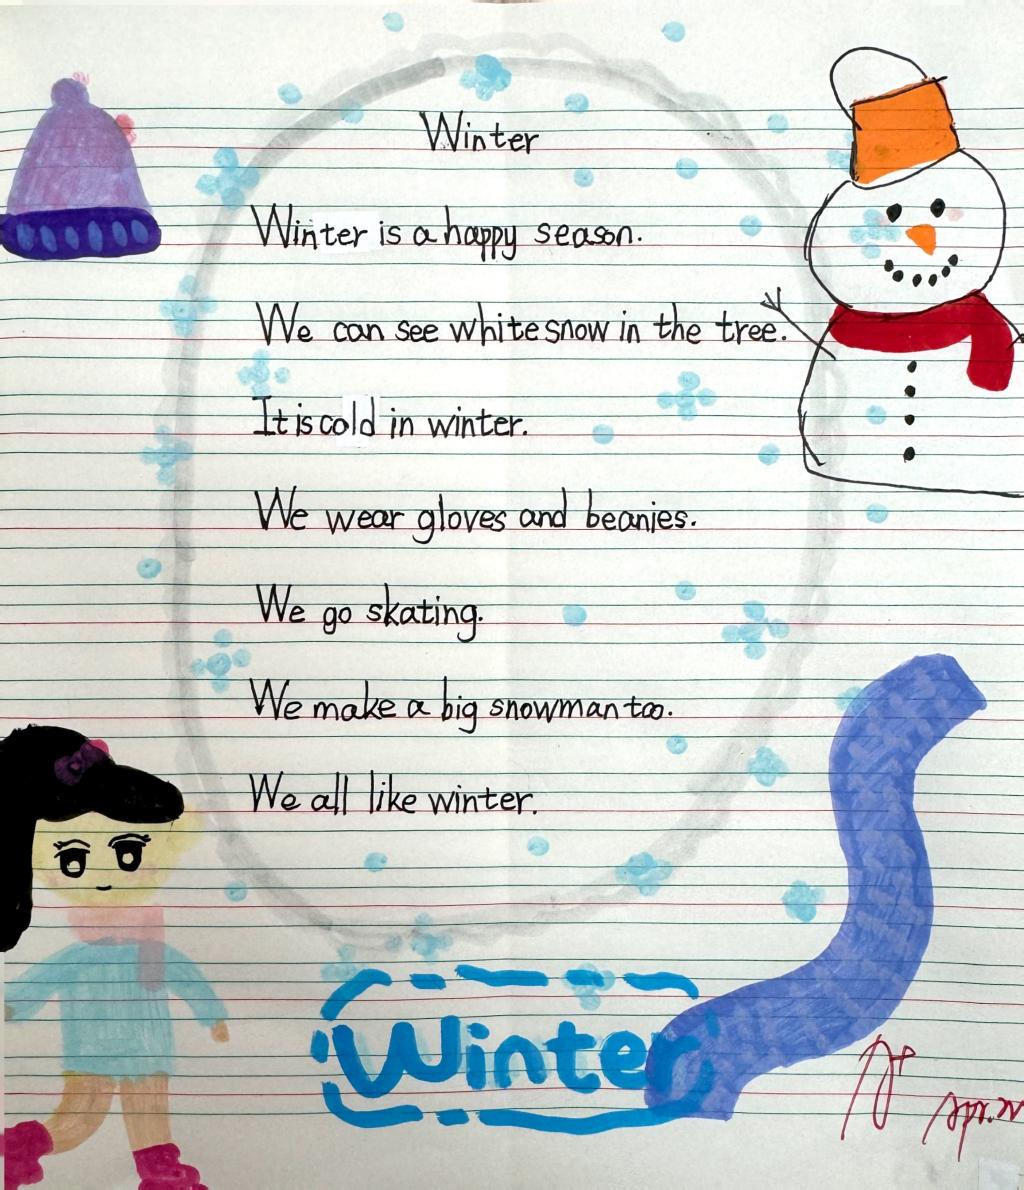 Winter
Winter is a happy season.
We can see white snow in the tree.
It is cold in winter.
We wear gloves and beanies.
We go skating.
We make a big snowman too.
We all like winter.
Winter